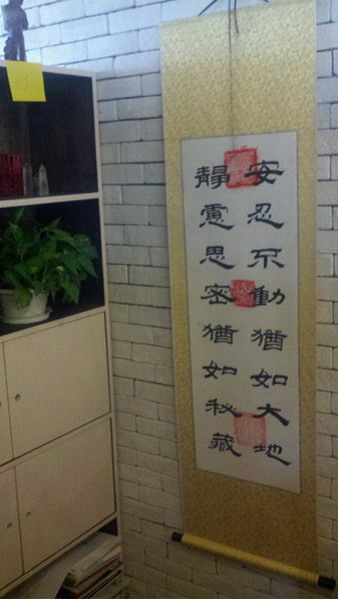 安忍不動猶如大地
靜慮思密猶如秘藏